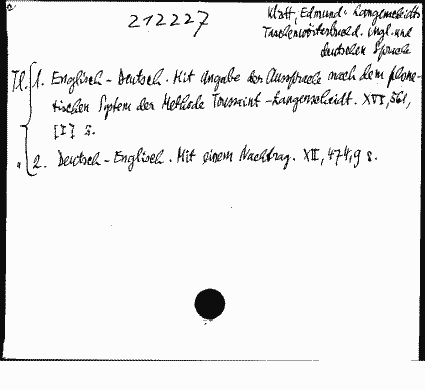 212227
Klatt, Edmund: Langenscheidts
Taschenwörterbuch d. engl. und
deutschen Sprache
Tl. 1. Englisch - Deutsch. Mit Angabe der Aussprache nach dem phone-
tischen System der Methode Toussaint - Langenscheidt. XVI, 561,
[1] S.
" 2. Deutsch - Englisch. Mit einem Nachtrag. XII, 474, 9 S.